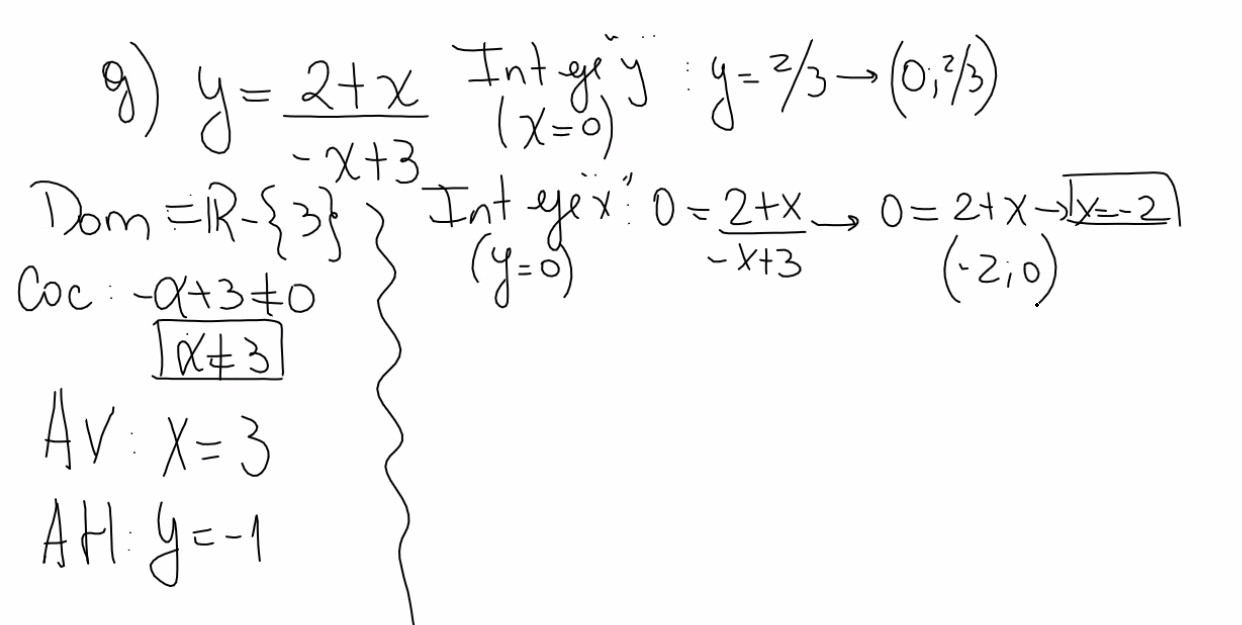 g) y = (2+x)/(-x+3)
Dom = ℝ-{3}
Coc: -x+3≠0
x≠3
AV: x=3
AH: y=-1
Int eje "y": y=2/3 → (0;2/3)
(x=0)
Int eje "x": 0 = (2+x)/(-x+3) → 0=2+x → x=-2
(y=0)
(-2;0)